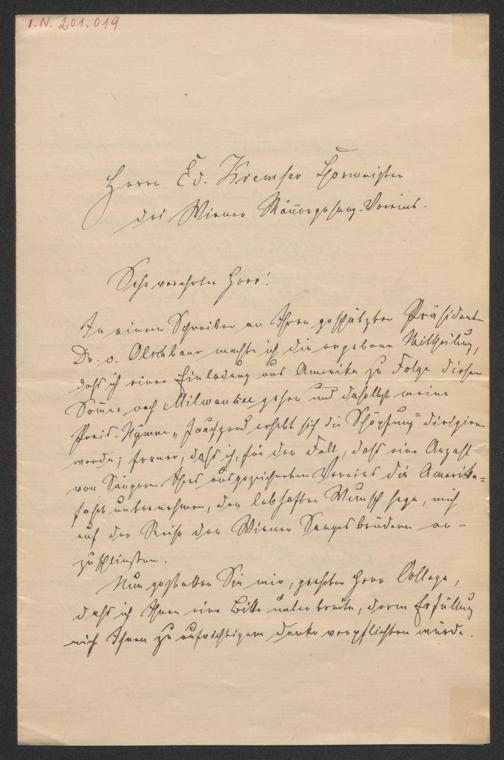 I.N. 201.019
Herrn Ed. Kremser Chormeister
des Wiener Männergesang-Vereins.
Sehr verehrter Herr!
In einem Schreiben an Ihren geschätzten Präsidenten
Dr. v. Olschbaur machte ich die ergebene Mittheilung,
daß ich einer Einladung aus Amerika zu Folge diesen
Sommer nach Milwaukee gehen und daselbst meine
Preis-Hymne „Jauchzend erhebt sich die Schöpfung" dirigiren
werde; ferner, daß ich, für den Fall, daß eine Anzahl
von Sängern Ihres ausgezeichneten Vereins die Amerika-
fahrt unternehmen, den lebhaften Wunsch hege, mich
auf der Reise den Wiener Sangesbrüdern an-
zuschließen.
Nun gestatten Sie mir, geehrter Herr College,
daß ich Ihnen eine Bitte unterbreite, deren Erfüllung
mich Ihnen zu aufrichtigem Danke verpflichten würde.